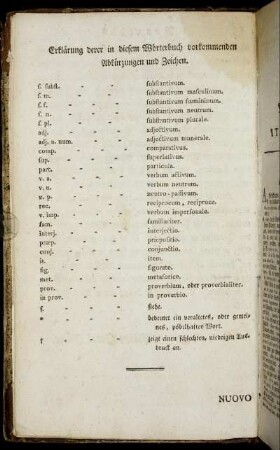 Erklärung derer in diesem Wörterbuch vorkommenden
Abkürzungen und Zeichen.
f. subst. - - substantivum.
f. m. - - substantivum masculinum.
f. f. - - substantivum fœmininum.
f. n. - - substantivum neutrum.
f. pl. - - substantivum plurale.
adj. - - adjectivum.
adj. n. num. - - adjectivum numerale.
comp. - - comparativus.
sup. - - superlativus.
part. - - particula.
v. a. - - verbum activum.
v. n. - - verbum neutrum.
n. p. - - neutro-passivum.
v. - - reciprocum, reciproce.
v. imp. - - verbum impersonale.
fam. - - familiariter.
interj. - - interjectio.
præp. - - præpositio.
conj. - - conjunctio.
it. - - item.
fig. - - figurate.
met. - - metaforico.
prov. - - proverbium, oder proverbialiter.
in prov. - - in proverbio.
f. - - siehe.
* - - bedeutet ein veraltetes, oder gemei-
nes, pöbelhaftes Wort.
† - - zeigt einen schlechten, niedrigen Aus-
druck an.
NUOVO